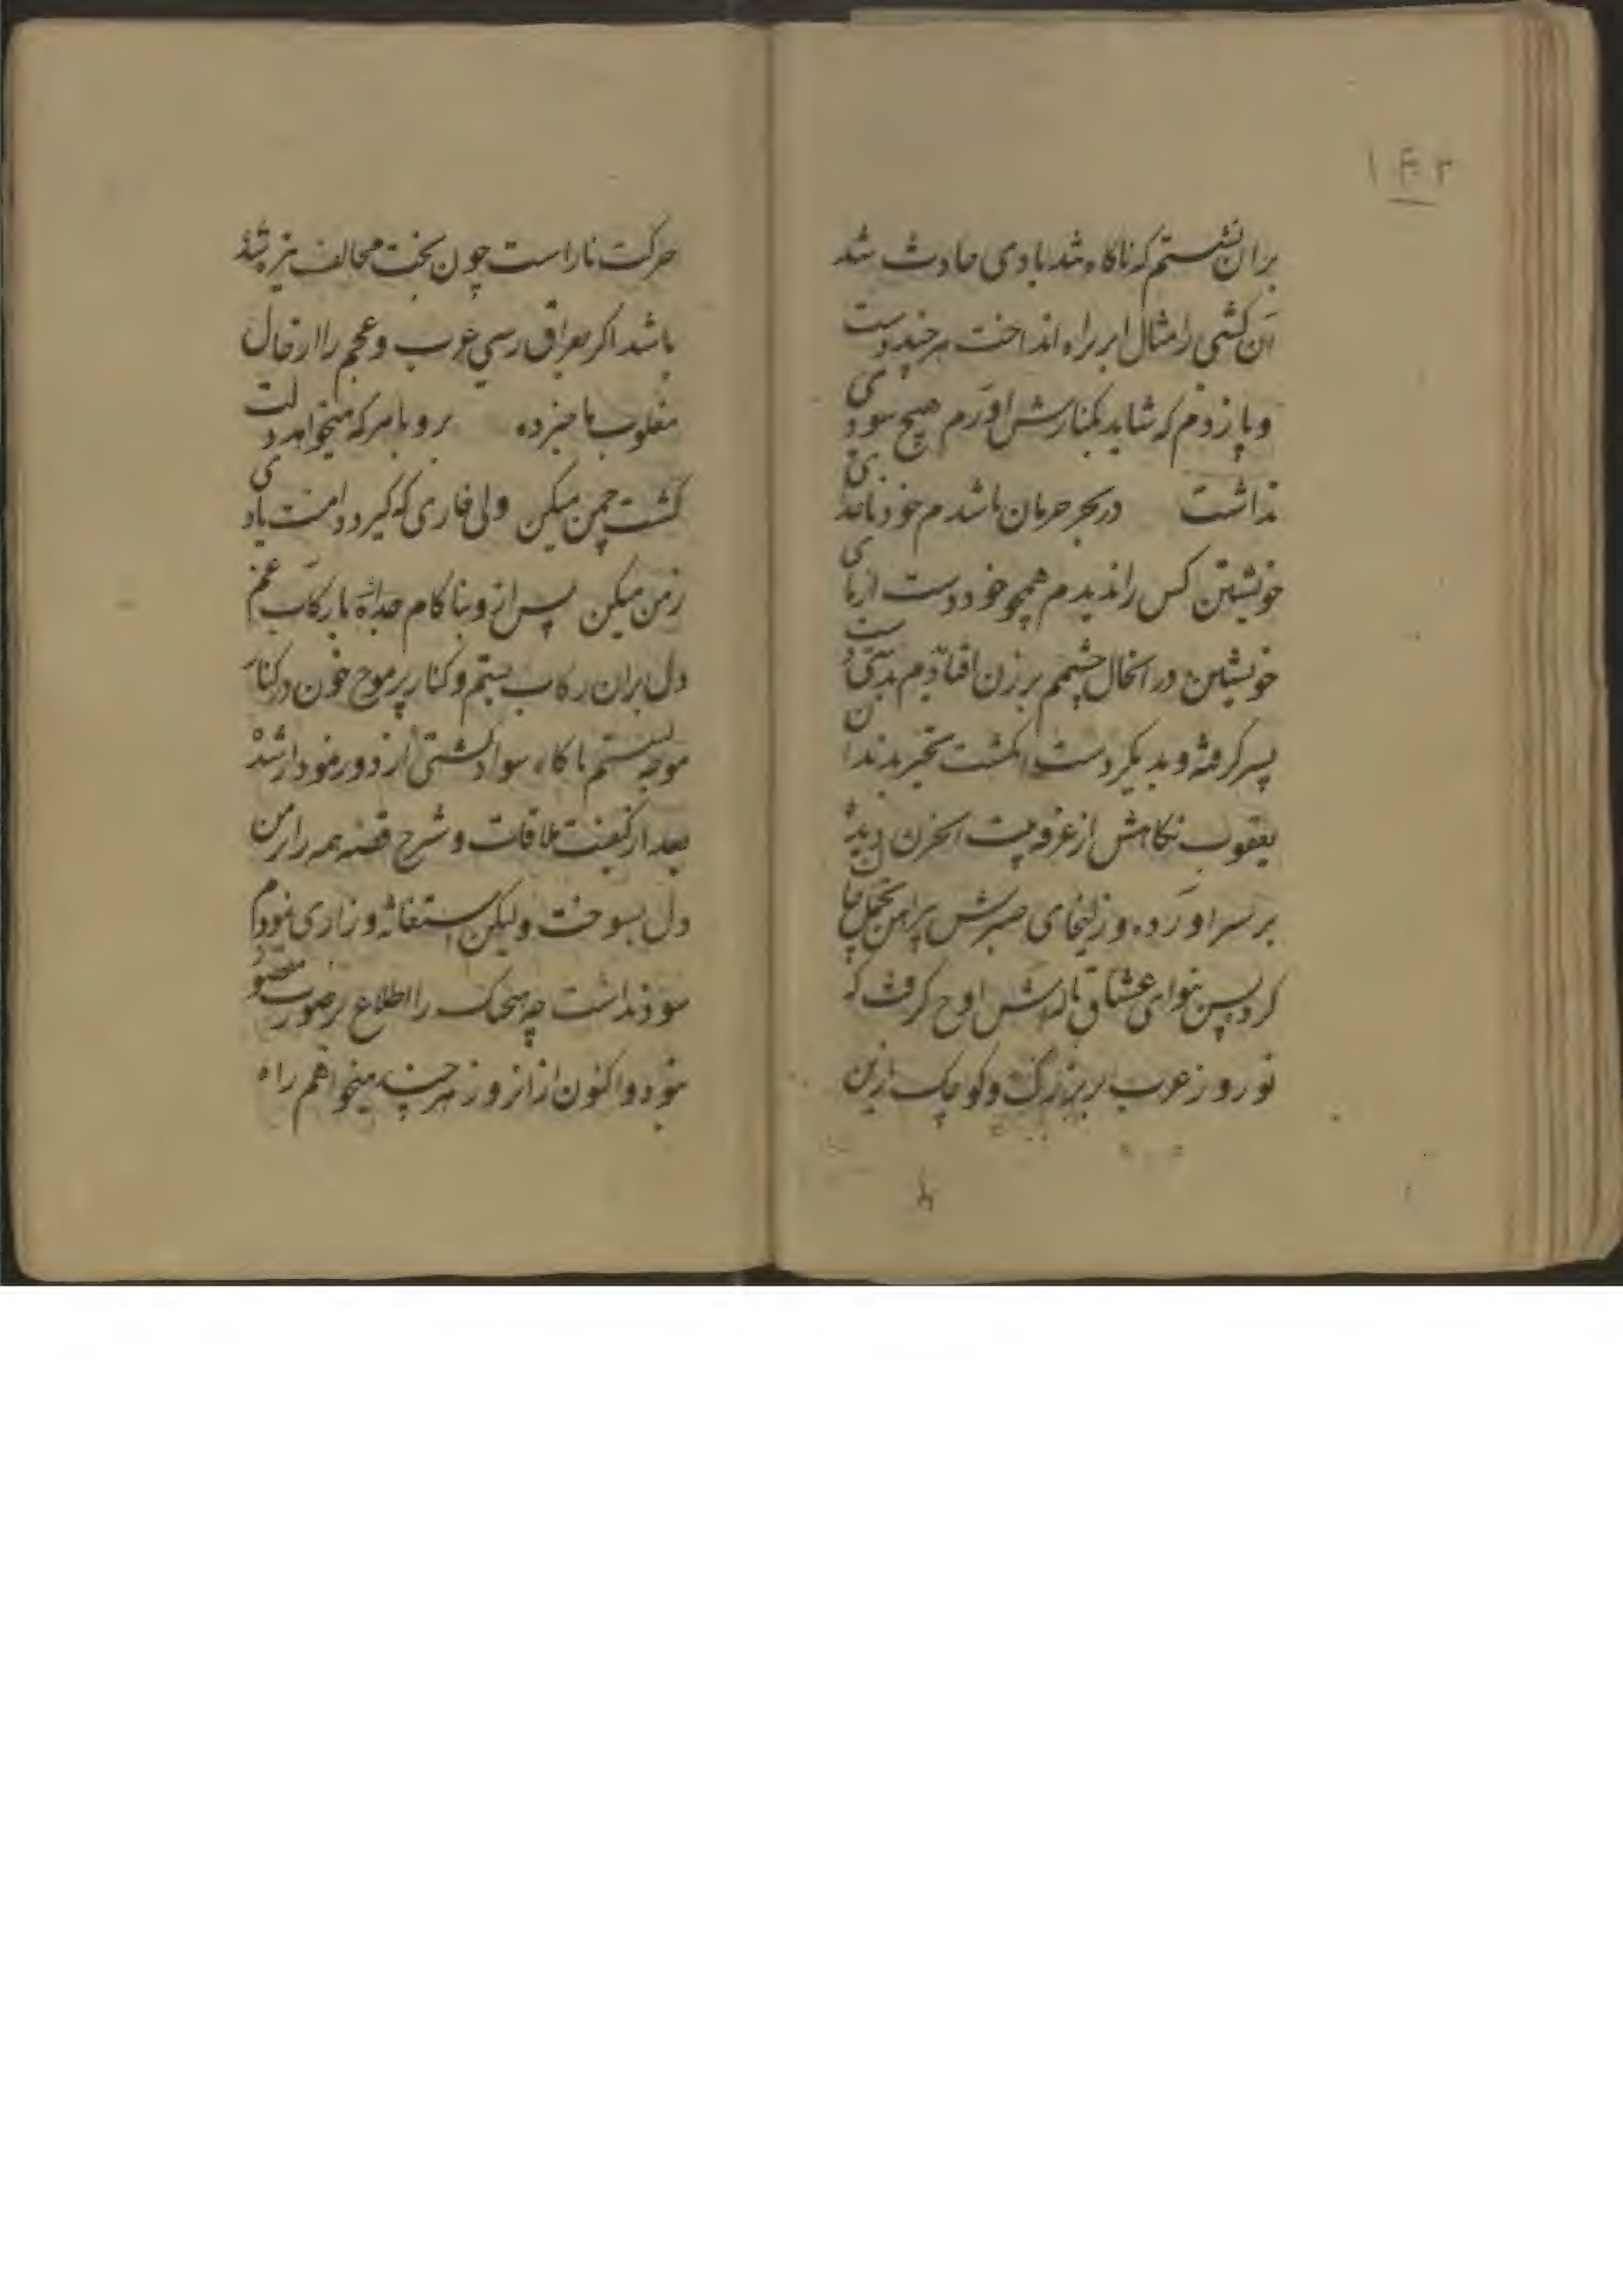 ۱۴۳
بران نشستم که ناکاه تند بادی حادث شد
آن کشتی را مثال ابر براه انداخت هر چند دست
و پا زدم که شاید بکنارش اورم هیچ سودی
نداشت در بحر حرمان باشدم خود ناخدای
خویشتن کس را ندیدم همچو خود دست از پای
خویشتن در انحال چشمم بر زن افتاد دیدم بدستی دست
پسر کرفته و بدیکر دست انکشت تحیر بدندان
یعقوب نکاهش از غرفه بیت الحزن دیده
بر سر اورده و زلیخای صبرش پیراهن تحمل چاک
کرد پس بنوای عشاق ناله‌اش اوج کرفت که
نوروز عرب بر بزرک و کوچک ازین
حرکت ناراست چون بخت مخالف نیز
باشد اکر بعراق رسی عرب و عجم را از حال
مغلوب ما خبر ده برو با هر که میخواهد دلت
کشت چمن میکن ولی خاری که کیرد دامنت یادی
زمن میکن پس از و بناکام جدا با رکاب غم
دل بران رکاب بستم و کنار پر موج خون در کنار
موجه نشستم ناکاه سواد کشتی از دور نمودار شد
بعد از کیفیت ملاقات و شرح قصه همه را بر من
دل بسوخت ولیکن استغاثه و زاری نمودم
سود نداشت چه هیچیک را اطلاع بر صوب مقصود
نبود و اکنون از انروز هر چند میخواهم راه